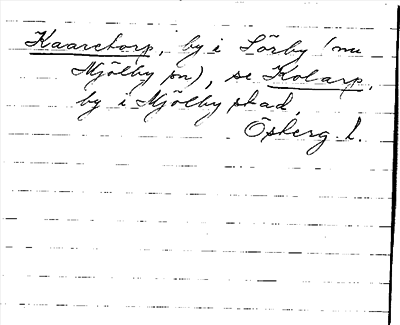 Kaaretorp, by i Sörby (nu
Mjölby sn), se Kolarp,
by i Mjölby stad,
Östberg. L.